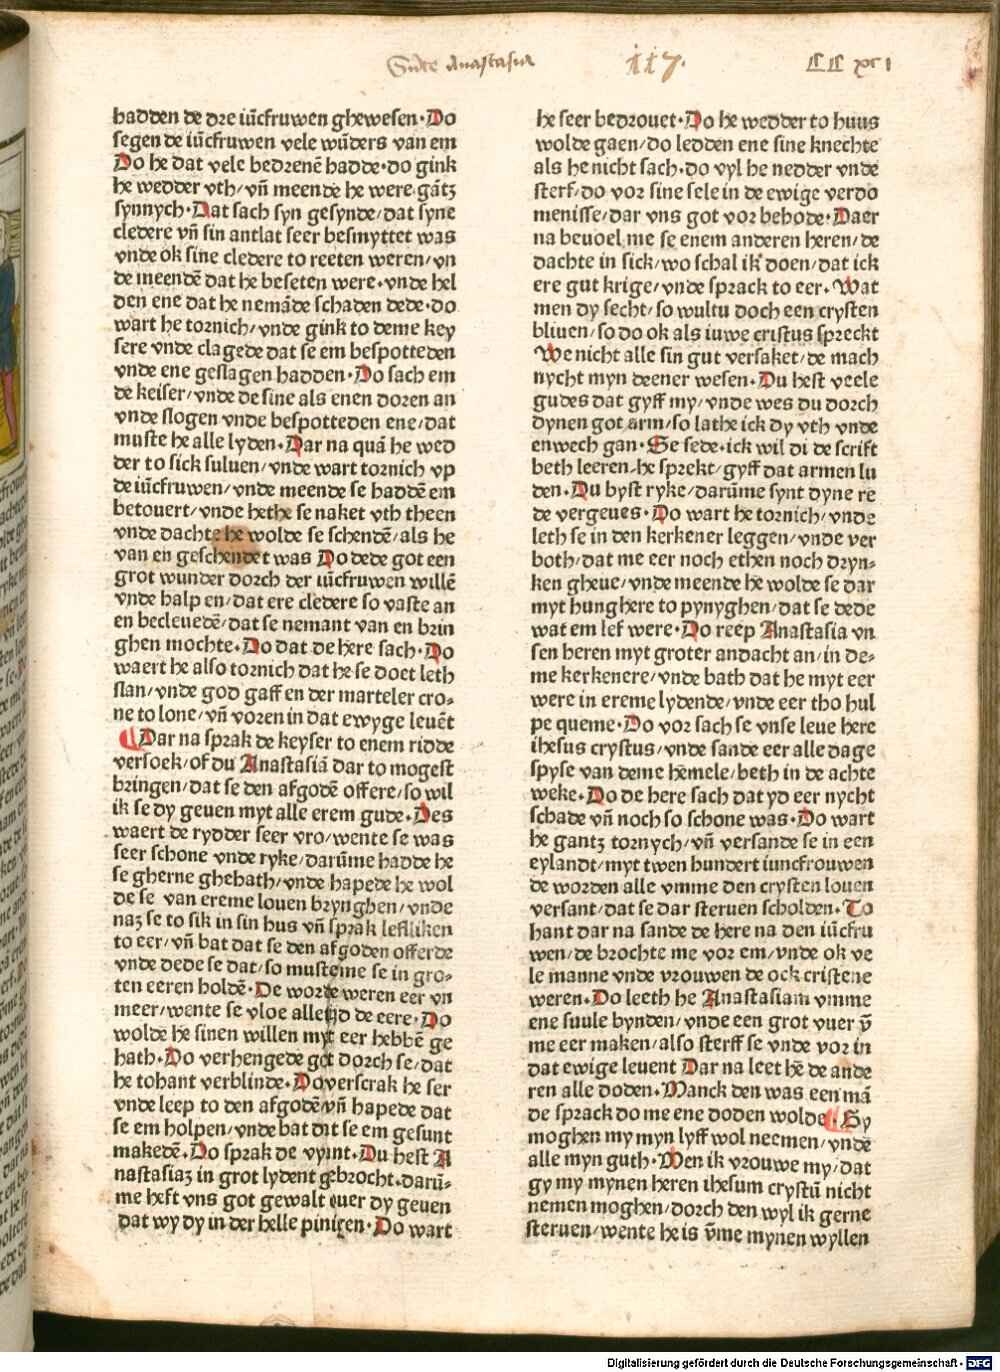 Sūte Anastasia 117. CC xci
hadden de dre iūcfruwen ghewesen. Do
segen de iūcfruwen vele wūders van em
Do he dat vele bedrenē hadde. do gink
he wedder vth/ vn̄ meende he were gātz
synnych. Dat sach syn gesynde/ dat syne
cledere vn̄ sin antlat seer besmyttet was
vnde ok sine cledere to reeten weren/ vn
de meendē dat he beseten were. vnde hel
den ene dat he nemāde schaden dede. do
wart he tornich/ vnde gink to deme key
sere vnde clagede dat se em bespotteden
vnde ene geslagen hadden. Do sach em
de keiser/ vnde de sine als enen doren an
vnde slogen vnde bespotteden ene/ dat
muste he alle lyden. Dar na quā he wed
der to sick suluen/ vnde wart tornich vp
de iūcfruwen/ vnde meende se haddē em
betouert/ vnde hethe se naket vth theen
vnde dachte he wolde se schendē/ als he
van en geschendet was Do dede got een
grot wunder dorch der iūcfruwen willē
vnde halp en/ dat ere cledere so vaste an
en becleuedē/ dat se nemant van en brin
ghen mochte. Do dat de here sach. Do
waert he also tornich dat he se doet leth
slan/ vnde god gaff en der marteler cro-
ne to lone/ vn̄ voren in dat ewyge leuēt
¶ Dar na sprak de keyser to enem ridde
versoek/ of du Anastasiā dar to mogest
bringen/ dat se den afgodē offere/ so wil
ik se dy geuen myt alle erem gude. Des
waert de rydder seer vro/ wente se was
seer schone vnde ryke/ darūme hadde he
se gherne ghehath/ vnde hapede he wol
de se van ereme louen brynghen/ vnde
naz se to sik in sin hus vn̄ sprak lefliken
to eer/ vn̄ bat dat se den afgoden offerde
vnde dede se dat/ so musteme se in gro-
ten eeren holdē. De worde weren eer vn
meer/ wente se vloe alletijd de eere. Do
wolde he sinen willen myt eer hebbē ge
hath. Do verhengede got dorch se/ dat
he tohant verblinde. Do verscrak he ser
vnde leep to den afgodē vn̄ hapede dat
se em holpen/ vnde bat dat se em gesunt
makedē. Do sprak de vyint. Du hest A
nastasiaz in grot lydent gebrocht. darū-
me heft vns got gewalt ouer dy geuen
dat wy dy in der helle pinigen. Do wart
he seer bedrouet. Do he wedder to huus
wolde gaen/ do ledden ene sine knechte
als he nicht sach. do vyl he nedder vnde
sterf/ do vor sine sele in de ewige verdo
menisse/ dar vns got vor behode. Daer
na beuoel me se enem anderen heren/ de
dachte in sick/ wo schal ik doen/ dat ick
ere gut krige/ vnde sprack to eer. Wat
men dy secht/ so wultu doch een crysten
bliuen/ so do ok als iuwe cristus spreckt
We nicht alle sin gut versaket/ de mach
nycht myn deener wesen. Du hest veele
gudes dat gyff my/ vnde wes du dorch
dynen got arm/ so lathe ick dy vth vnde
enwech gan. Se sede. ick wil di de scrift
beth leeren/ he sprekt/ gyff dat armen lu
den. Du byst ryke/ darūme synt dyne re
de vergeues. Do wart he tornich/ vnde
leth se in den kerkener leggen/ vnde ver
both/ dat me eer noch ethen noch dryn-
ken gheue/ vnde meende he wolde se dar
myt hunghere to pynyghen/ dat se dede
wat em lef were. Do reep Anastasia vn
sen heren myt groter andacht an/ in de-
me kerkenere/ vnde bath dat he myt eer
were in ereme lydende/ vnde eer tho hul
pe queme. Do vor sach se vnse leue here
ihesus crystus/ vnde sande eer alle dage
spyse van deme hēmele/ beth in de achte
weke. Do de here sach dat yd eer nycht
schade vn̄ noch so schone was. Do wart
he gantz tornych/ vn̄ versande se in een
eylandt/ myt twen hundert iuncfrouwen
de worden alle vmme den crysten louen
versant/ dat se dar steruen scholden. To
hant dar na sande de here na den iūcfru
wen/ de brochte me vor em/ vnde ok ve
le manne vnde vrouwen de ock cristene
weren. Do leeth he Anastasiam vmme
ene suule bynden/ vnde een grot vuer v̄
me eer maken/ also sterff se vnde vor in
dat ewige leuent Dar na leet hē de ande
ren alle doden. Manck den was een mā
de sprack do me ene doden wolde. ¶ Gy
moghen my myn lyff wol neemen/ vnde
alle myn guth. Men ik vrouwe my/ dat
gy my mynen heren ihesum crystū nicht
nemen moghen/ dorch den wyl ik gerne
steruen/ wente he is v̄me mynen wyllen
Digitalisierung gefördert durch die Deutsche Forschungsgemeinschaft - DFG